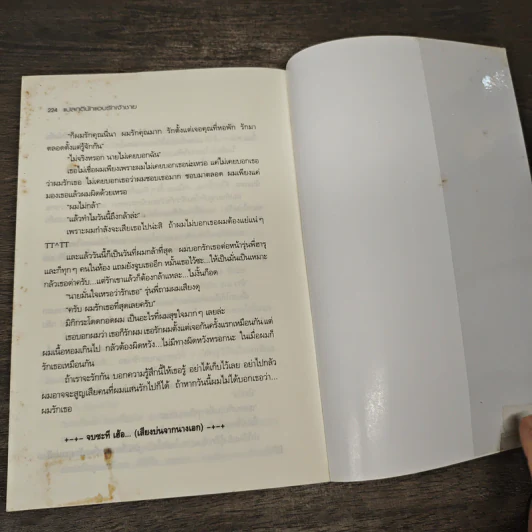 224 แปลภูตินักแอบรักเจ้าชาย
“ก็ผมรักคุณนี่นา ผมรักคุณมาก รักตั้งแต่เจอคุณที่หอพัก รักมา
ตลอดตั้งแต่รู้จักกัน”
“ไม่จริงหรอก นายไม่เคยบอกฉัน”
เธอไม่เชื่อผมเพียงเพราะผมไม่เคยบอกเธอน่ะเหรอ แต่ไม่เคยบอกเธอ
ว่าผมรักเธอ ไม่เคยบอกเธอว่าผมชอบเธอมาก ชอบมาตลอด ผมเพียงแค่
มองเธอแล้วผมผิดด้วยเหรอ
“ผมไม่กล้า”
“แล้วทำไมวันนี้ถึงกล้าล่ะ”
เพราะผมกำลังจะเสียเธอไปน่ะสิ ถ้าผมไม่บอกเธอผมต้องแย่แน่ๆ
TT^TT
และแล้ววันนี้ก็เป็นวันที่ผมกล้าที่สุด ผมบอกรักเธอต่อหน้ารุ่นพี่ฮารุ
และก็ทุกๆ คนในห้อง แถมยังจูบเธออีก หมั้นเธอไว้ซะ...ให้เป็นมั่นเป็นเหมาะ
กลัวเธอด่าครับ...แต่รักเขาแล้วก็ต้องกล้าแหละ...ไม่งั้นก็อด
“นายมั่นใจเหรอว่ารักเธอ” รุ่นพี่ถามผมเสียงดุ
“ครับ ผมรักเธอที่สุดเลยครับ”
มิกิกระโดดกอดผม เป็นอะไรที่ผมสุขใจมากๆ เลยล่ะ
เธอบอกผมว่า เธอก็รักผม เธอรักผมตั้งแต่เจอกันครั้งแรกเหมือนกัน แต่
ผมเนื้อหอมเกินไป กลัวต้องผิดหวัง...ไม่มีทางผิดหวังหรอกนะ ในเมื่อผมก็
รักเธอเหมือนกัน
ถ้าเราจะรักกัน บอกความรู้สึกนี้ให้เธอรู้ อย่าได้เก็บไว้เลย อย่าไปกลัว
ผมอาจจะสูญเสียคนที่ผมแสนรักไปก็ได้ ถ้าหากวันนี้ผมไม่ได้บอกเธอว่า...
ผมรักเธอ
+-+- จบซะที เฮ้อ... (เสียงบ่นจากนางเอก) -+-+